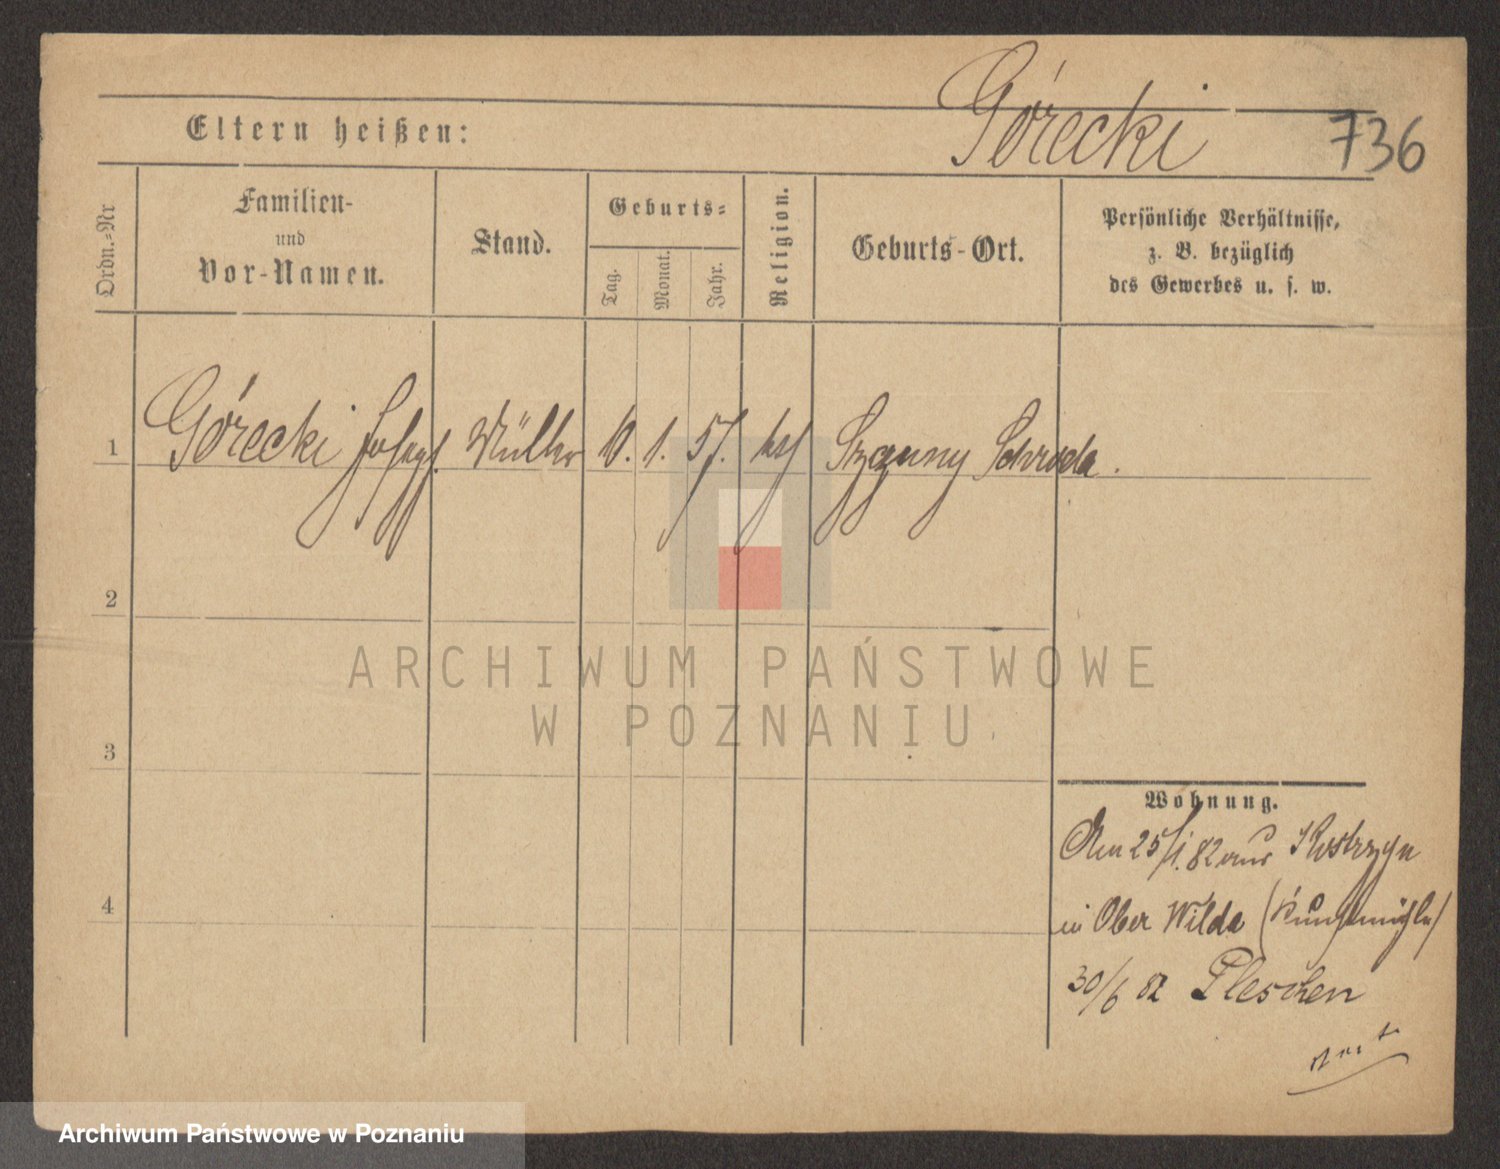 Górecki
736
Eltern heißen:
Ordn.-Nr
Familien-
und
Vor-Namen.
Stand.
Geburts-
Tag.
Monat.
Jahr.
Religion.
Geburts-Ort.
Persönliche Verhältnisse,
z. B. bezüglich
des Gewerbes u. s. w.
1 Górecki Josef. Müller 10. 1. 57. kth Schroda.
2
3
4
Wohnung.
Am 25/1. 82 aus Kostrzyn
in Ober Wilda (Kunstmühle)
30/6 82 Pleschen
ARCHIWUM PAŃSTWOWE
W POZNANIU
Archiwum Państwowe w Poznaniu